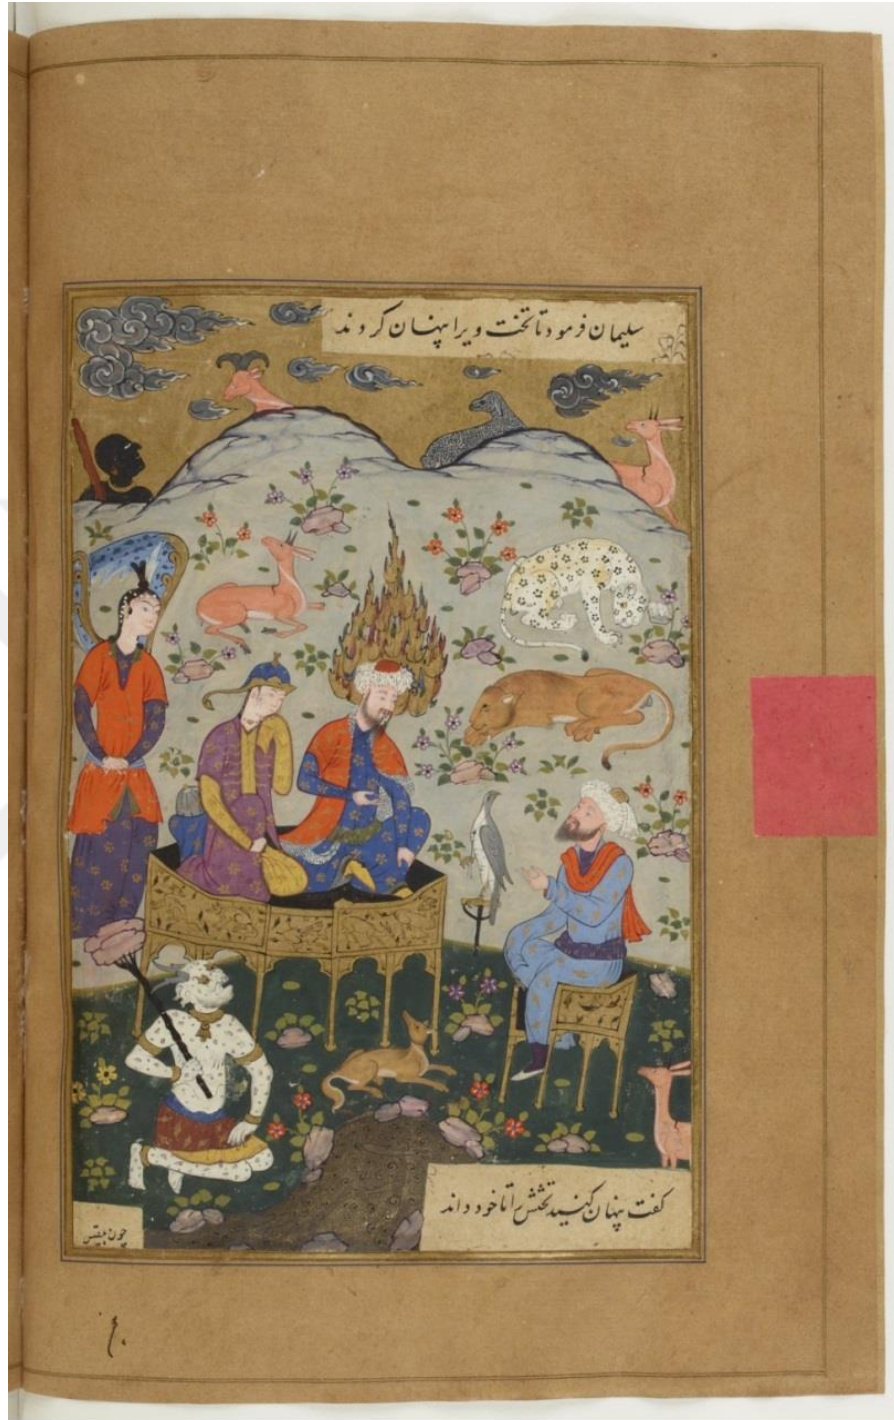 سلیمان فرمود تا تخت ویرا پنهان کردند
کفت پنهان کنید تختش را تا خود داند
چون بلقیس